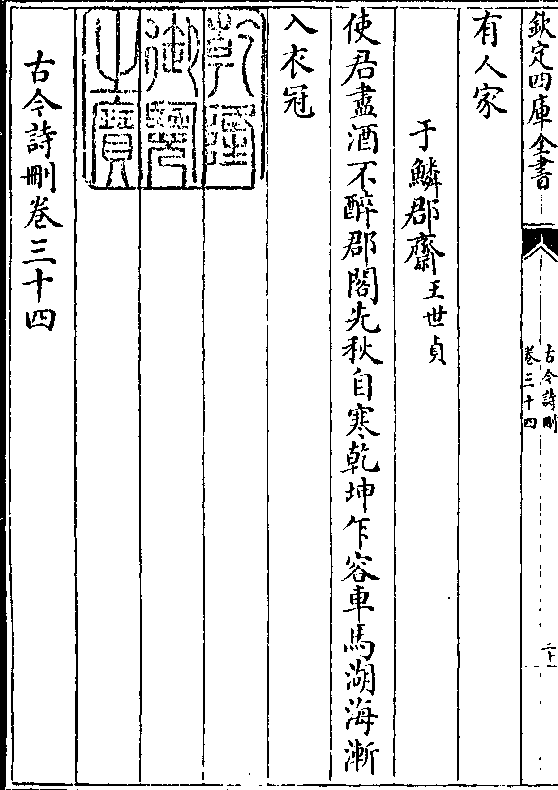 欽定四庫全書
古今詩刪
卷三十四
二十
有人家
于鱗郡齋王世貞
使君盡酒不醉郡閣先秋自寒乾坤乍容車馬湖海漸
入衣冠
乾隆
御覽
之寶
古今詩刪卷三十四